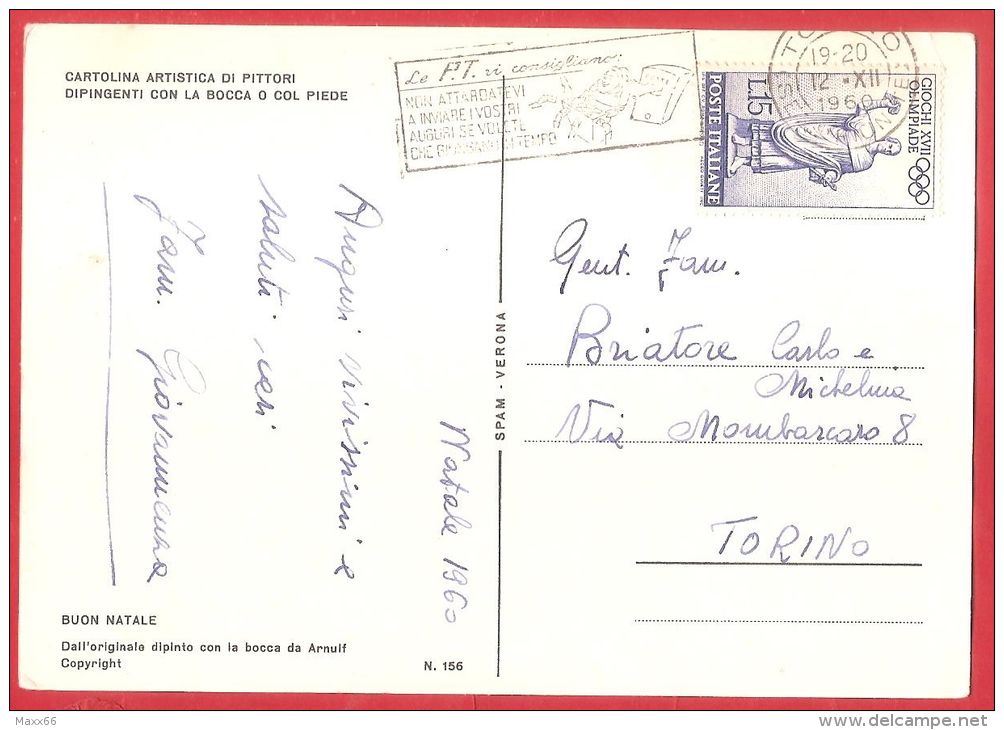 CARTOLINA ARTISTICA DI PITTORI
DIPINGENTI CON LA BOCCA O COL PIEDE
Le P.T. vi consigliano:
NON ATTARDATEVI
A INVIARE I VOSTRI
AUGURI SE VOLETE
CHE GIUNGANO IN TEMPO
19-20
12 - XII
1960
GIOCHI XVII
OLIMPIADE
L.15
POSTE ITALIANE
Natale 1960
Auguri vivissimi e
saluti cari
Fam.
Gent. Fam.
Briatore Carlo e
Michelina
Via Mombarcaro 8
TORINO
SPAM - VERONA
BUON NATALE
Dall'originale dipinto con la bocca da Arnulf
Copyright
N. 156
Maxx66
www.delcampe.net